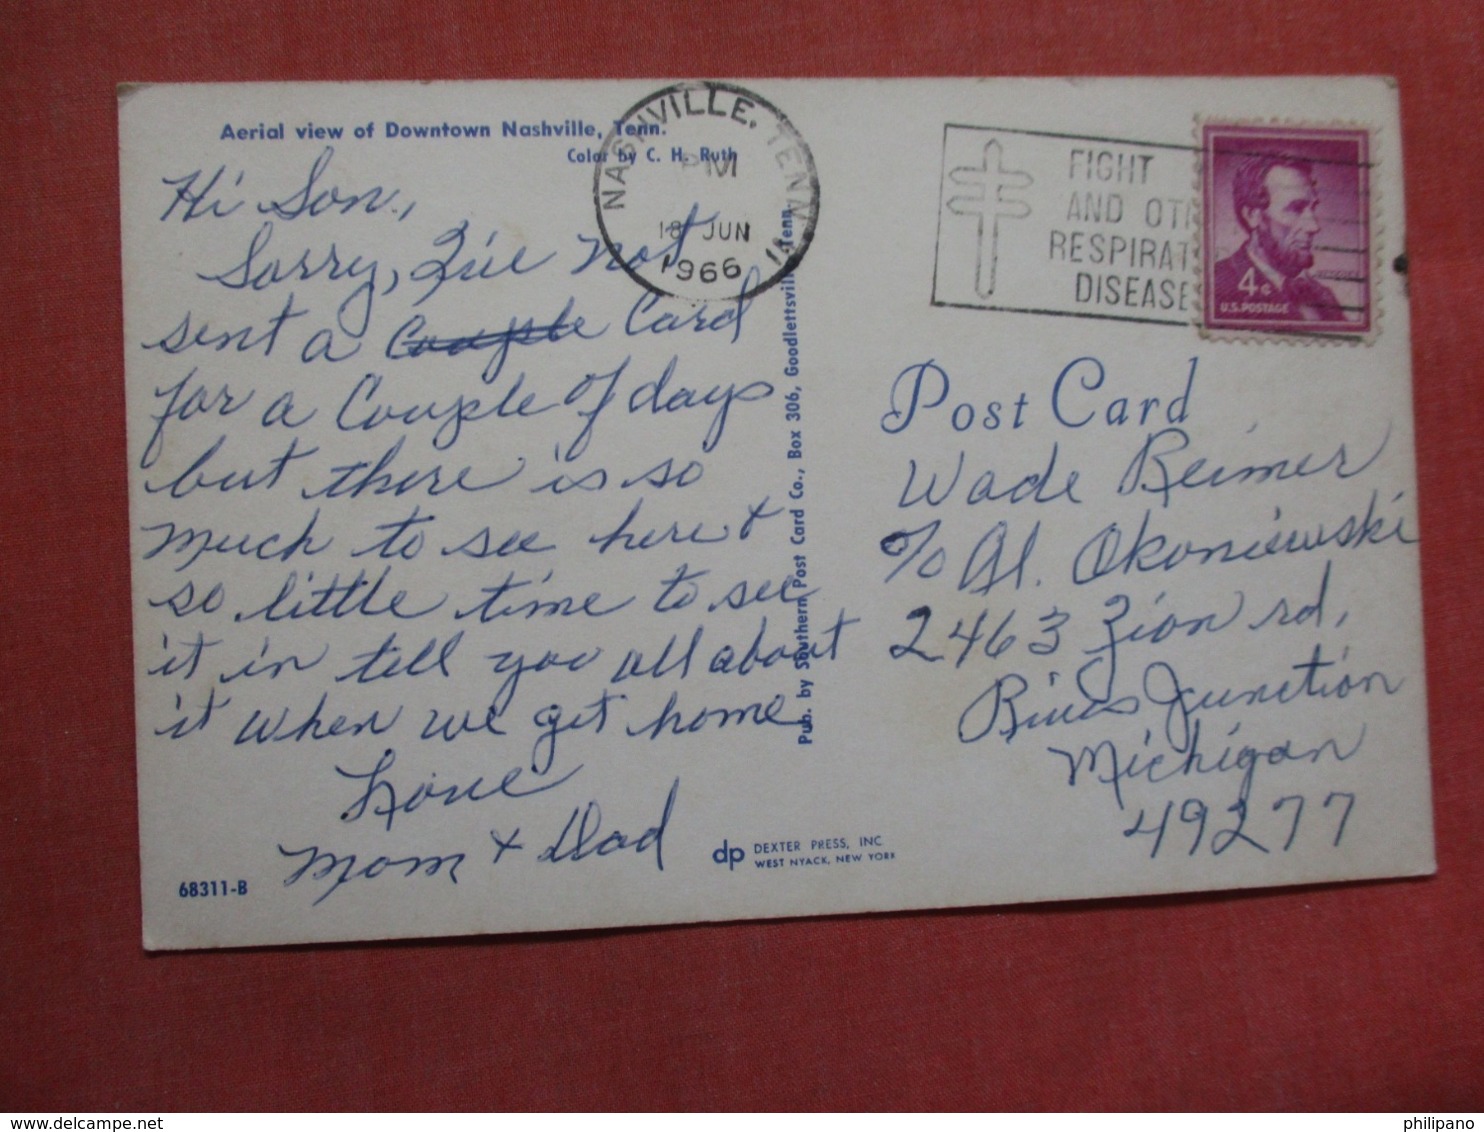 Aerial view of Downtown Nashville, Tenn.
Color by C. H. Ruth
Hi Son,
Sorry, I've not
sent a Couple Card
for a Couple of days
but there is so
much to see here +
so little time to see
it in tell you all about
it when we get home
Love
Mom + Dad
68311-B
NASHVILLE, TENN.
PM
18 JUN
1966
Pub. by Southern Post Card Co., Box 306, Goodlettsville, Tenn.
dp DEXTER PRESS, INC
WEST NYACK, NEW YORK
FIGHT
AND OTH
RESPIRAT
DISEASE
4¢
U.S. POSTAGE
Post Card
Wade Reimer
c/o Al. Okoniewski
2463 Zion rd,
Rives Junction
Michigan
49277
www.delcampe.net
philipano